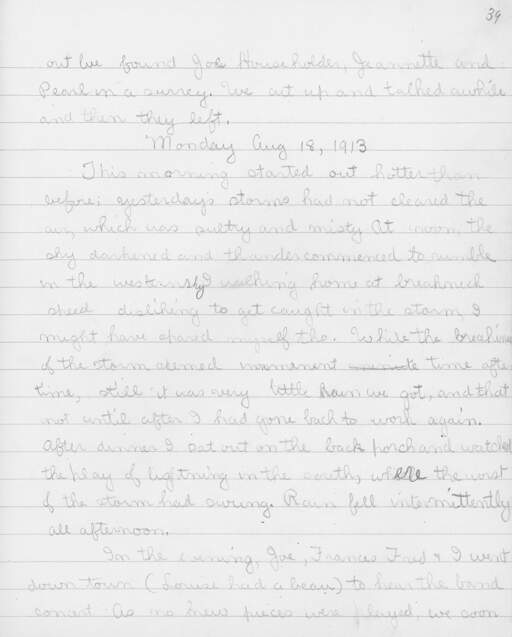 39
out we found Joe Householder, Jeannette and
Pearl in a surrey. We cut up and talked awhile
and then they left.
Monday Aug 18, 1913
This morning started out hotter than
before; yesterday's storms had not cleared the
air, which was sultry and misty At noon, the
sky darkened and thunder commenced to rumble
in the western sky I walking home at breakneck
speed disliking to get caught in the storm, I
might have spared myself tho. While the breaking
of the storm seemed immenent time after
time, still it was very little Rain we got, and that
not until after I had gone back to work again.
After dinner I sat out on the back porch and watched
the play of lightning in the south, where the worst
of the storm had swung. Rain fell intermittently
all afternoon.
In the evening, Joe, Frances Fred & I went
down town (Louise had a beau) to hear the band
concert. As no new pieces were played, we soon